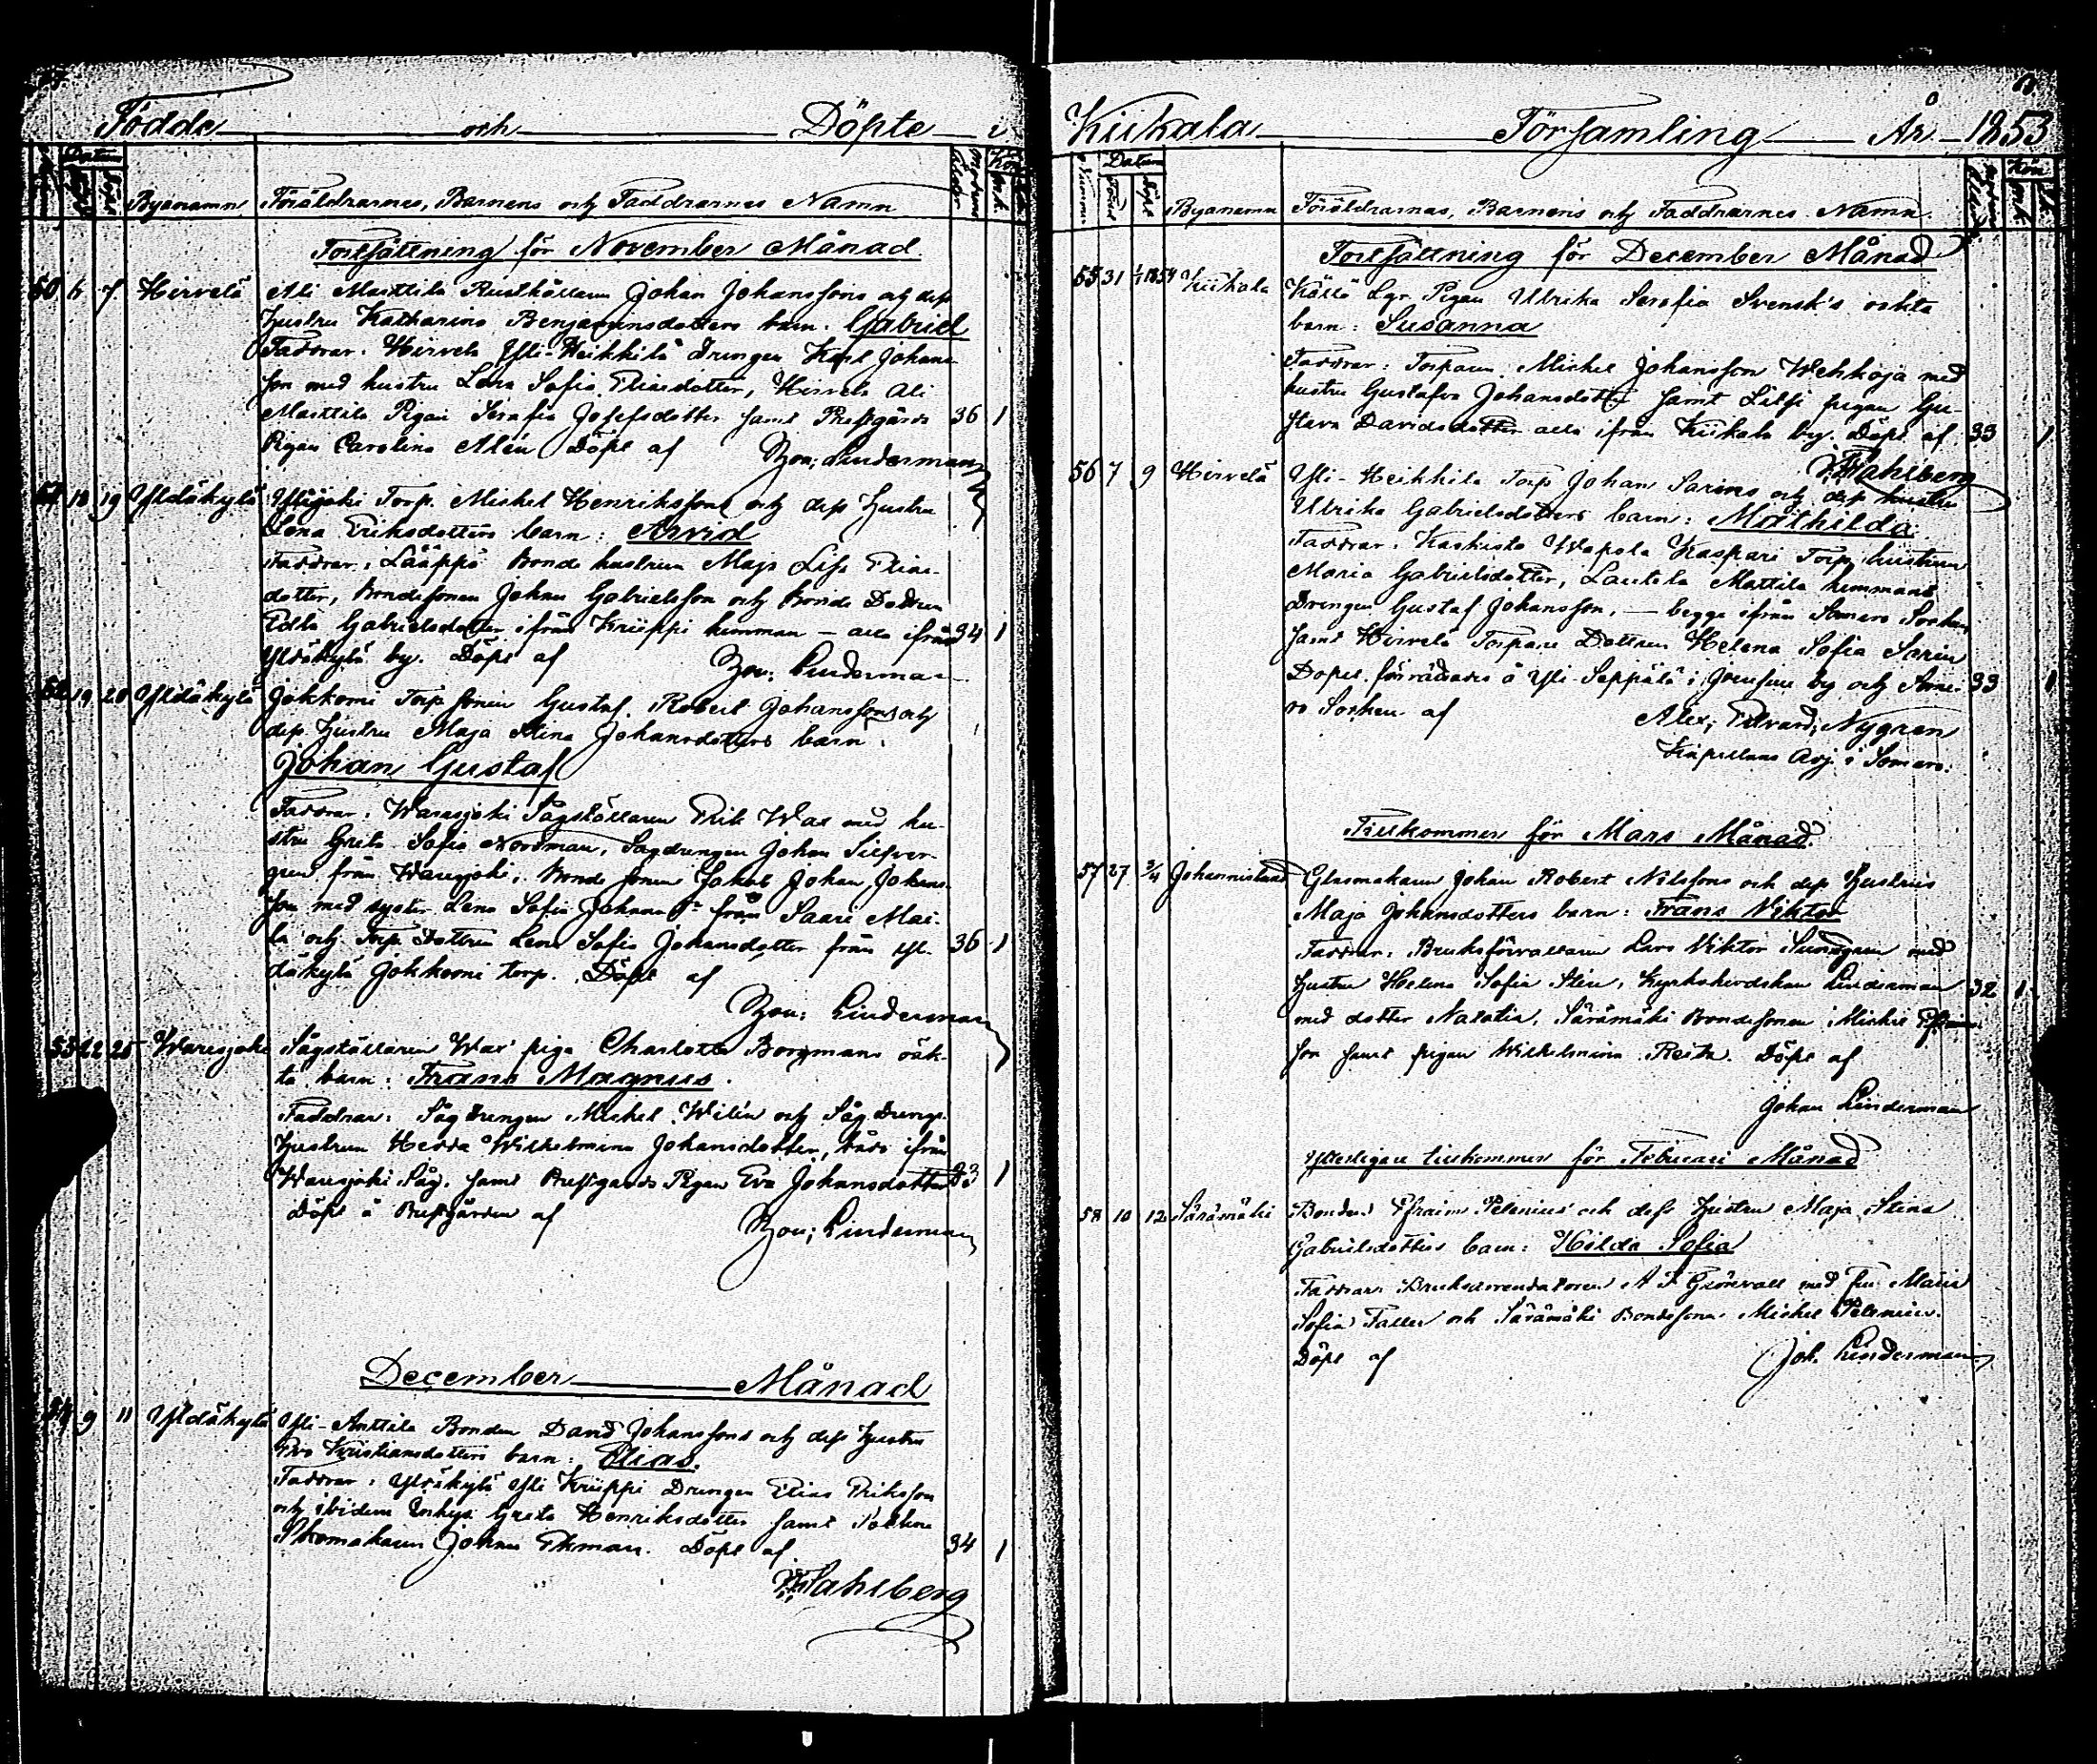 Födde och Döpte i
N:o Datum Födde Döpte Byanamn Föräldrarnes, Barnens och Faddrarnes Namn Modrens Ålder Kön m.k.
Fortsättning för November Månad.
50 6 7 Hirvelä Ali Marttila Rusthållaren Johan Johanssons och dess
hustru Katharina Benjaminsdotters barn: Gabriel
Faddrar: Hirvelä Yli-Heikkilä Drengen Karl Johans-
son med hustru Lena Sofia Eliaedotter, Hirvelä Ali
Marttila Pigan Serafia Josefsdotter samt Prestgårds 36 1
Pigan Carolina Alén Döpt af Zon; Linderman
51 18 19 Yldäkylä Ylijoki Torp. Michel Henrikssons och dess Hustru
Lena Eriksdotters barn: Arvid
Faddrar: Lääppä Bonde hustrun Maja Lisa Elias-
dotter, Bondesonen Johan Gabrielsson och Bonde Dottren
Edla Gabrielsdotter ifrån Kriippi hemman — alla ifrån 34 1
Yldäkylä by. Döpt af Zon; Linderman
52 19 20 Yldäkylä Jokkomi Torp sonen Gustaf Robert Johanssons och
dess Hustru Maja Stina Johansdotters barn:
Johan Gustaf
Faddrar: Waresjoki Sågställaren Erik Wal med hu-
stru Greta Sofia Nordman, Sågdrengen Johan Silfver-
gren från Waresjoki, Bonde sonen Jakob Johan Johans-
son med syster Lena Sofia Johans D:r från Saari Mai-
la och Torp. Dottren Lena Sofia Johansdotter från Yl- 36 1
däkylä Jokkomi torp. Döpt af
Zon; Linderman
53 22 25 Waresjoki Sågställaren Wal' piga Charlotta Borgmans oäk-
ta barn: Frans Magnus.
Faddrar: Sågdrengen Michel Wilén och Såg Drengs
Hustrun Hedda Wilhelmina Johansdotter, båda ifrån
Waresjoki Såg, samt Prestgårds Pigan Eva Johansdotter 23 1
Döpt å Prestgården af Zon; Linderman
December Månad
54 9 11 Yldäkylä Yli-Anttila Bonden David Johanssons och dess Hustru
Eva Kristiansdotters barn: Elias.
Faddrar: Yldäkylä Yli Kriippi Drengen Elias Eriksson
och ibidem Greta Henriksdotter samt Sockne
Skomakaren Johan Ekman. Döpt af 34 1
Wahlberg
Kiikala Församling År 1853
Nummer Datum Född Döpt Byanamn Föräldrarnas, Barnens och Faddrarnes Namn. Kön
Fortsättning för December Månad
55 31 1/1 1854 Kiikala Källä Lgr. Pigan Ulrika Serafia Svensk's oekta
barn: Susanna
Faddrar: Torparen Michel Johansson Wehkoja med
hustru Gustafva Johansdotter samt Litsi pigan Gu-
stava Davidsdotter alla ifrån Kiikala by. Döpt af 33 1
Wahlberg
56 7 9 Hirvelä Yli-Heikkila Torp Johan Sarins och dess hustru
Ulrika Gabrielsdotters barn: Mathilda.
Faddrar: Kaskisto Wapola Kaspari Torp hustrun
Maria Gabrielsdotter, Lautela Mattila hemmans
Drengen Gustaf Johansson, — begge ifrån Somero Socken,
samt Hirvelä Torpare Dottren Helena Sofia Sarin
Dopet förrättades å Yli-Seppälä i Joensuu by och Some- 33 1
ro Socken af Alex; Edvard; Nygren
Kapellans Adj. i Somero.
Tillkommen för Mars Månad.
57 27 3/4 Johannislund Glasmakaren Johan Robert Nilssons och dess Hustrus
Maja Johansdotters barn: Frans Viktor
Faddrar: Bruksförvaltaren Lars Viktor Sundgren med
hustru Helena Sofia Alén, Kyrkoherdskan Linderman 32 1
med dotter Natalia, Särämäki Bondesonen Michel Efraims-
son samt pigan Wilhelmina Reita. Döpt af
Johan Linderman
Ytterligare tillkommen för Februari Månad
58 10 12 Särämäki Bonden Efraim Selenius och dess Hustru Maja Stina
Gabrielsdotters barn: Hilda Sofia
Faddrar: Bruksarrendatoren A F Grönvall med fru Maria
Sofia Faller och Särämäki Bondesonen Michel Selenius.
Döpt af Joh. Linderman